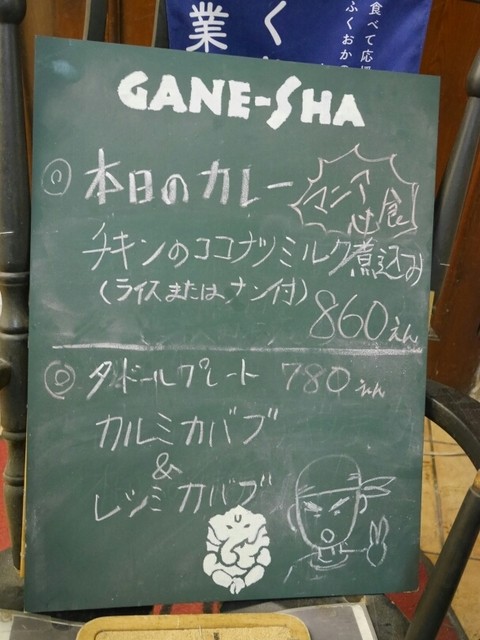 食べて応
ふくおかの
く
業
GANE-SHA
本日のカレー
チキンのココナツミルク煮込み
(ライスまたはナン付)
860えん
タドールプレート 780えん
カルミカバブ
&
レツミカバブ